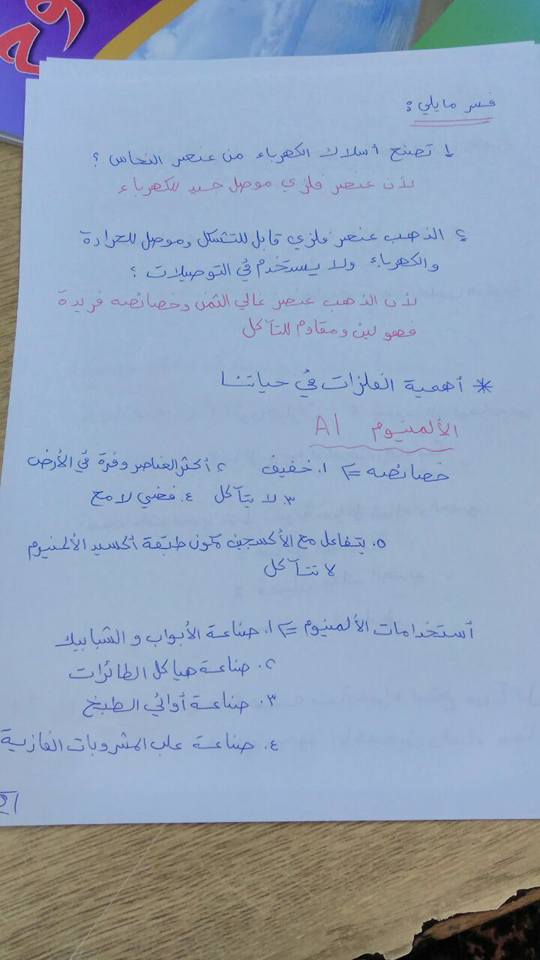 فسر مايلي:
١ تصنع أسلاك الكهرباء من عنصر النحاس ؟
لأن عنصر فلزي موصل جيد للكهرباء
٢ الذهب عنصر فلزي قابل للتشكل وموصل للحرارة
والكهرباء ولا يستخدم في التوصيلات ؟
لأن الذهب عنصر غالي الثمن وخصائصه فريدة
فهو لين ومقاوم للتآكل
* أهمية الفلزات في حياتنا
الألمنيوم Al
خصائصه => ١. خفيف ٢. أكثر العناصر وفرة في الأرض
٣. لا يتآكل ٤. فضي لامع
٥. يتفاعل مع الأكسجين مكون طبقة أكسيد الألمنيوم
لا تتآكل
استخدامات الألمنيوم => ١. صناعة الأبواب و الشبابيك
٢. صناعة هياكل الطائرات
٣. صناعة أواني الطبخ
٤. صناعة علب المشروبات الغازية